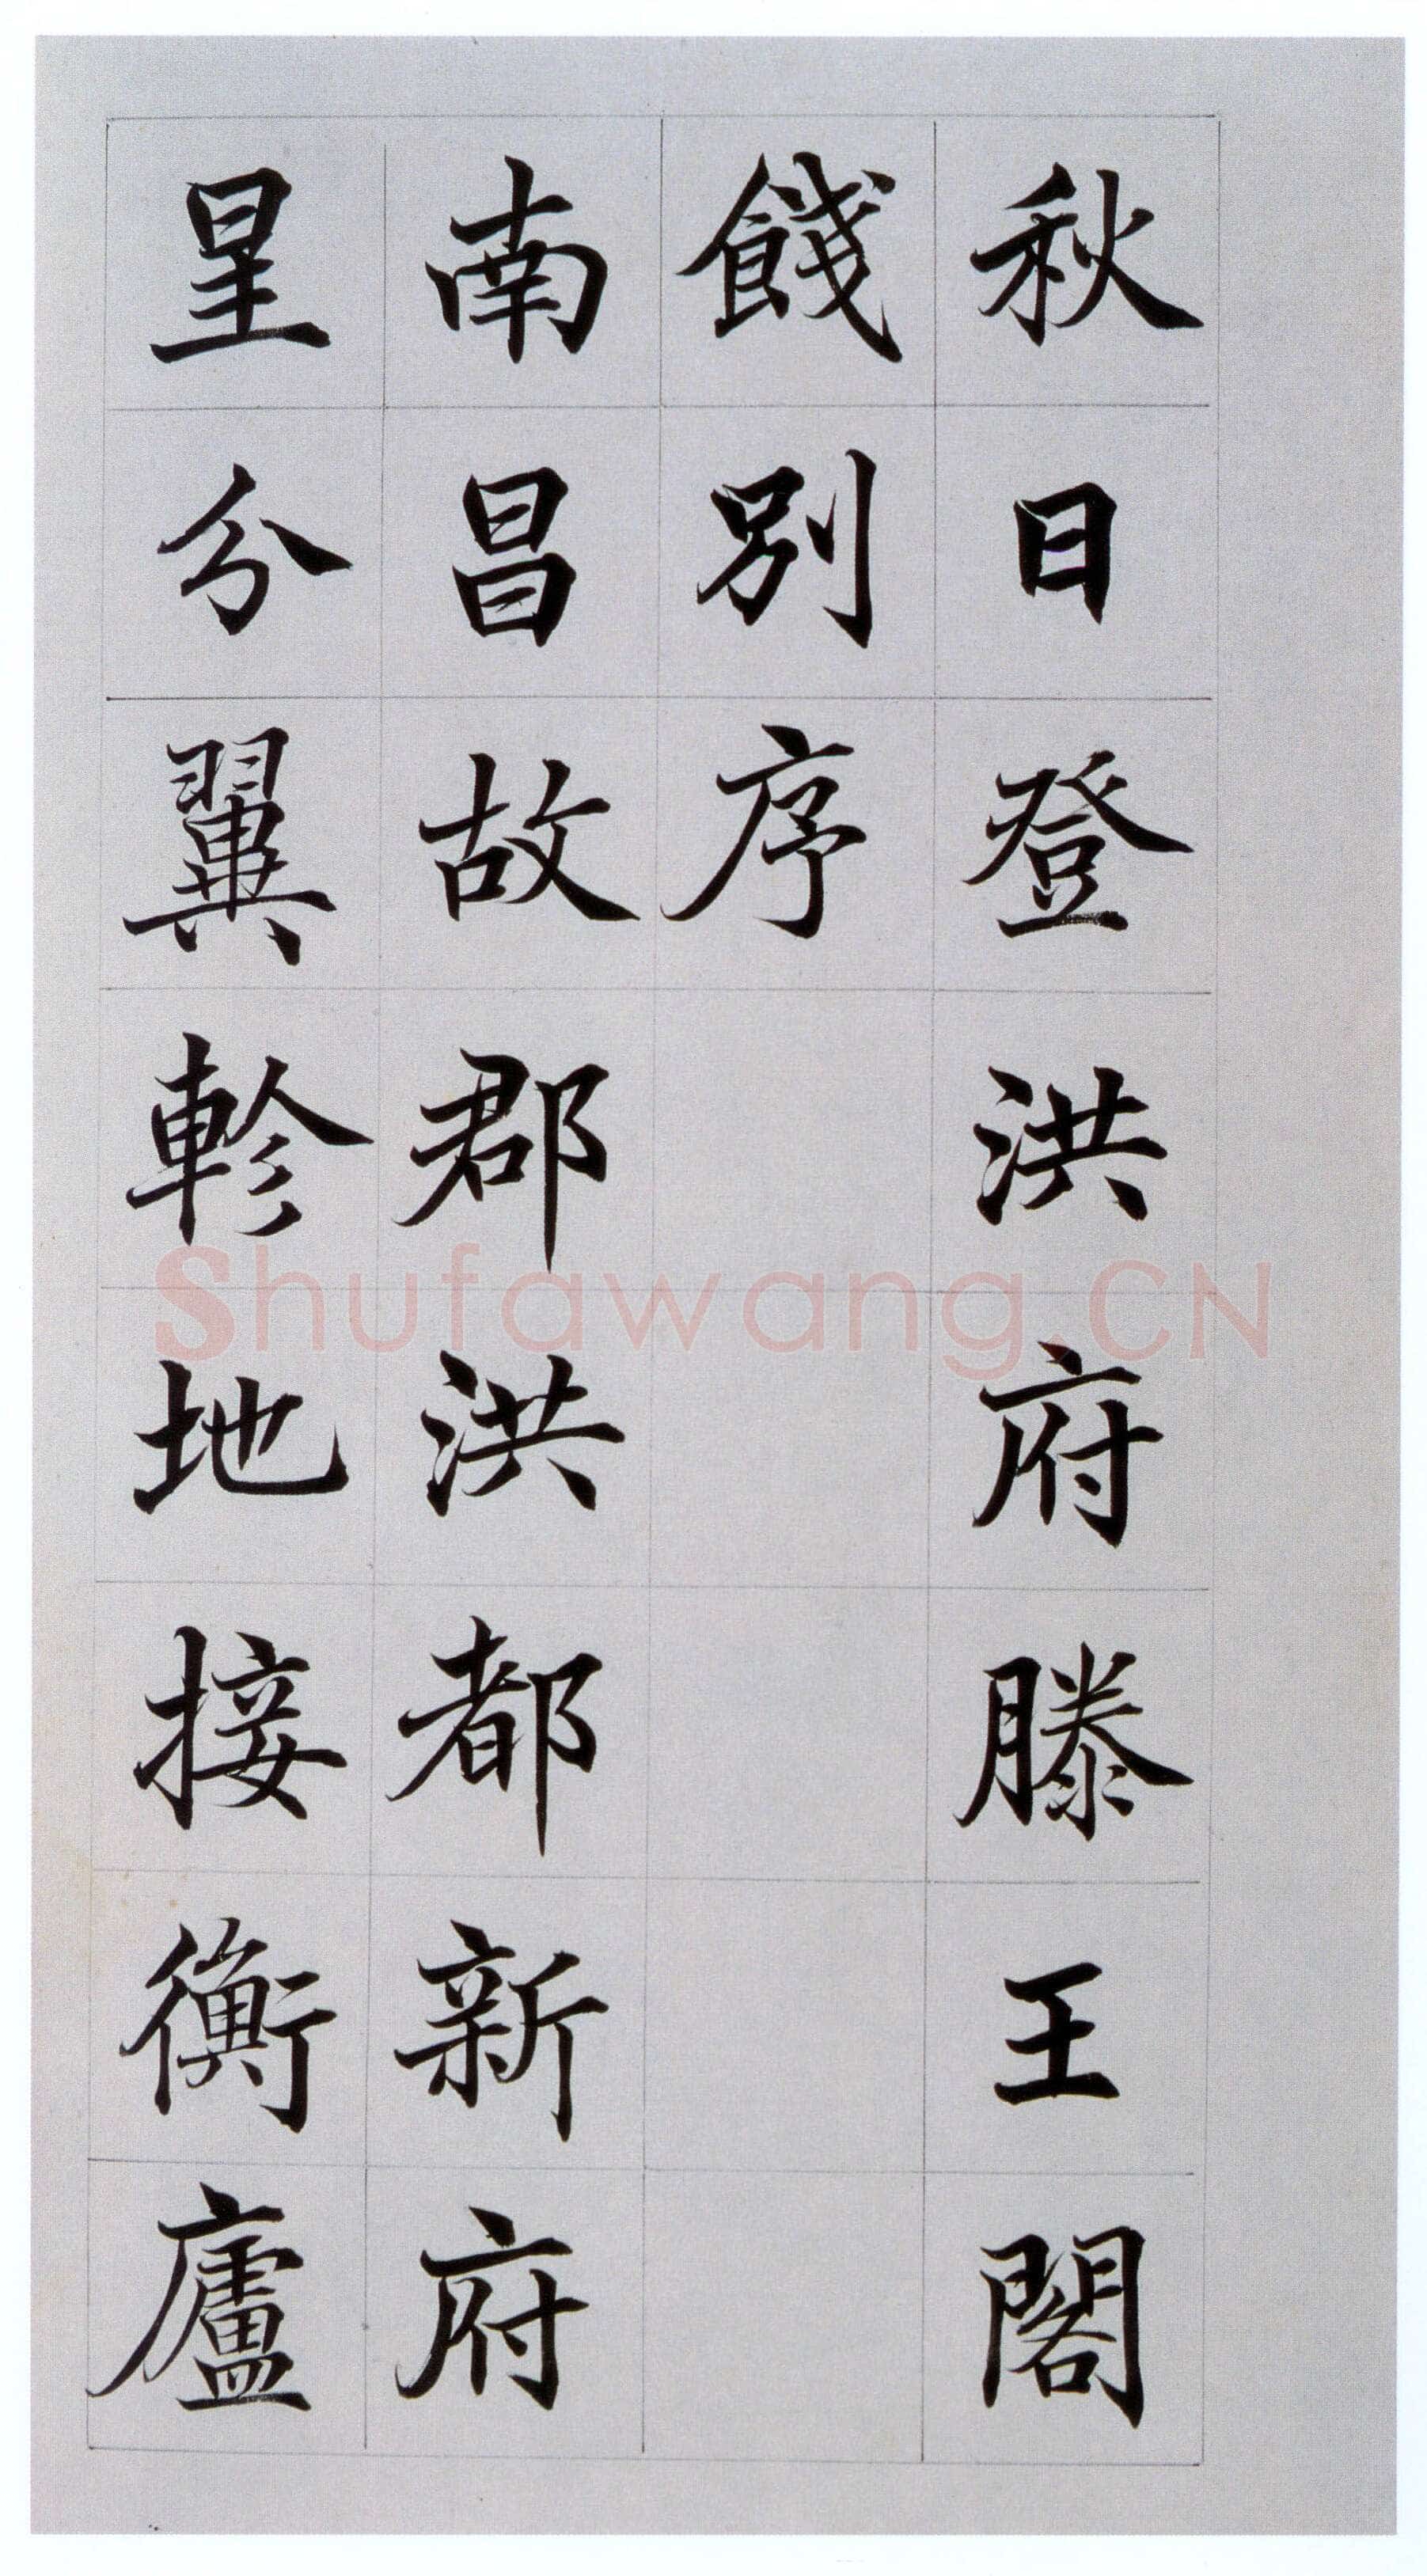 秋日登洪府滕王閣
餞別序
南昌故郡洪都新府
星分翼軫地接衡廬
Shufawang.CN